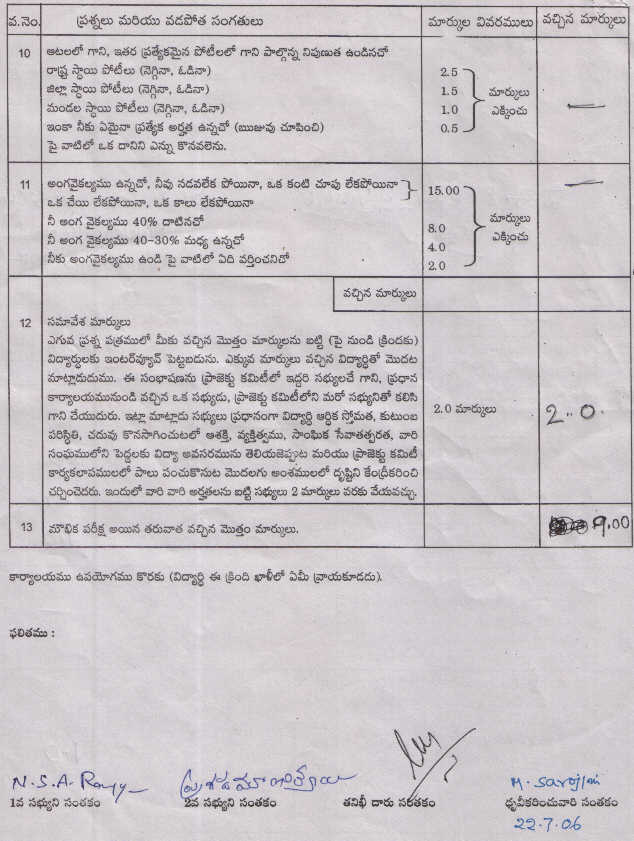 వ.నెం. ప్రశ్నలు మరియు వడపోత సంగతులు మార్కుల వివరములు వచ్చిన మార్కులు
10 ఆటలలో గాని, ఇతర ప్రత్యేకమైన పోటీలలో గాని పాల్గొన్న నిపుణత ఉండినచో
రాష్ట్ర స్థాయి పోటీలు (నెగ్గినా, ఓడినా) 2.5
జిల్లా స్థాయి పోటీలు (నెగ్గినా, ఓడినా) 1.5 మార్కులు
మండల స్థాయి పోటీలు (నెగ్గినా, ఓడినా) 1.0 ఎక్కించు —
ఇంకా నీకు ఏమైనా ప్రత్యేక అర్హత ఉన్నచో (ఋజువు చూపించి) 0.5
పై వాటిలో ఒక దానిని ఎన్ను కొనవలెను.
11 అంగవైకల్యము ఉన్నచో, నీవు నడవలేక పోయినా, ఒక కంటి చూపు లేకపోయినా 15.00 —
ఒక చేయి లేకపోయినా, ఒక కాలు లేకపోయినా
నీ అంగ వైకల్యము 40% దాటినచో 8.0 మార్కులు
నీ అంగ వైకల్యము 40-30% మధ్య ఉన్నచో 4.0 ఎక్కించు
నీకు అంగవైకల్యము ఉండి పై వాటిలో ఏది వర్తించనిచో 2.0
వచ్చిన మార్కులు
12 సమావేశ మార్కులు
ఎగువ ప్రశ్న పత్రములో మీకు వచ్చిన మొత్తం మార్కులను బట్టి (పై నుండి క్రిందకు)
విద్యార్థులకు ఇంటర్‌వ్యూవ్ పెట్టబడును. ఎక్కువ మార్కులు వచ్చిన విద్యార్థితో మొదట
మాట్లాడుదుము. ఈ సంభాషణను ప్రాజెక్టు కమిటీలో ఇద్దరి సభ్యులచే గాని, ప్రధాన
కార్యాలయమునుండి వచ్చిన ఒక సభ్యుడు, ప్రాజెక్టు కమిటీలోని మరో సభ్యునితో కలిసి
గాని చేయుదురు. ఇట్లా మాట్లాడు సభ్యులు ప్రధానంగా విద్యార్థి ఆర్థిక స్తోమత, కుటుంబ 2.0 మార్కులు 2.0
పరిస్థితి, చదువు కొనసాగించుటలో ఆశక్తి, వ్యక్తిత్వము, సాంఘిక సేవాతత్పరత, వారి
సంఘములోని పెద్దలకు విద్యా అవసరమును తెలియజెప్పుట మరియు ప్రాజెక్టు కమిటీ
కార్యకలాపములలో పాలు పంచుకొనుట మొదలగు అంశములలో దృష్టిని కేంద్రీకరించి
చర్చించెదరు. ఇందులో వారి వారి అర్హతలను బట్టి సభ్యులు 2 మార్కులు వరకు వేయవచ్చు.
13 మౌఖిక పరీక్ష అయిన తరువాత వచ్చిన మొత్తం మార్కులు. 9.00
కార్యాలయము ఉపయోగము కొరకు (విద్యార్థి ఈ క్రింది ఖాళీలో ఏమీ వ్రాయకూడదు).
ఫలితము :
N.S.A. M. Sarojini
1వ సభ్యుని సంతకం 2వ సభ్యుని సంతకం తనిఖీ దారు సంతకం ధృవీకరించువారి సంతకం
22.7.06